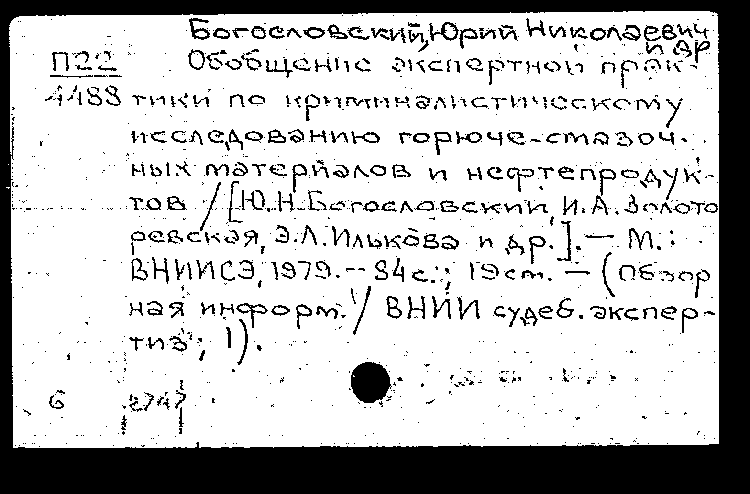 Богословский, Юрий Николаевич
и др
П22 Обобщение экспертной прак-
4488 тики по криминалистическому
исследованию горюче-смазоч-
ных материалов и нефтепродук-
тов / [Ю.Н. Богословский, И.А. Золото
ревская, Э.Л. Илькова и др.]. — М.:
ВНИИСЭ, 1979. -- 84 с.; 19 см. — (Обзор
ная информ. / ВНИИ судеб. экспер-
тиз; 1).
6